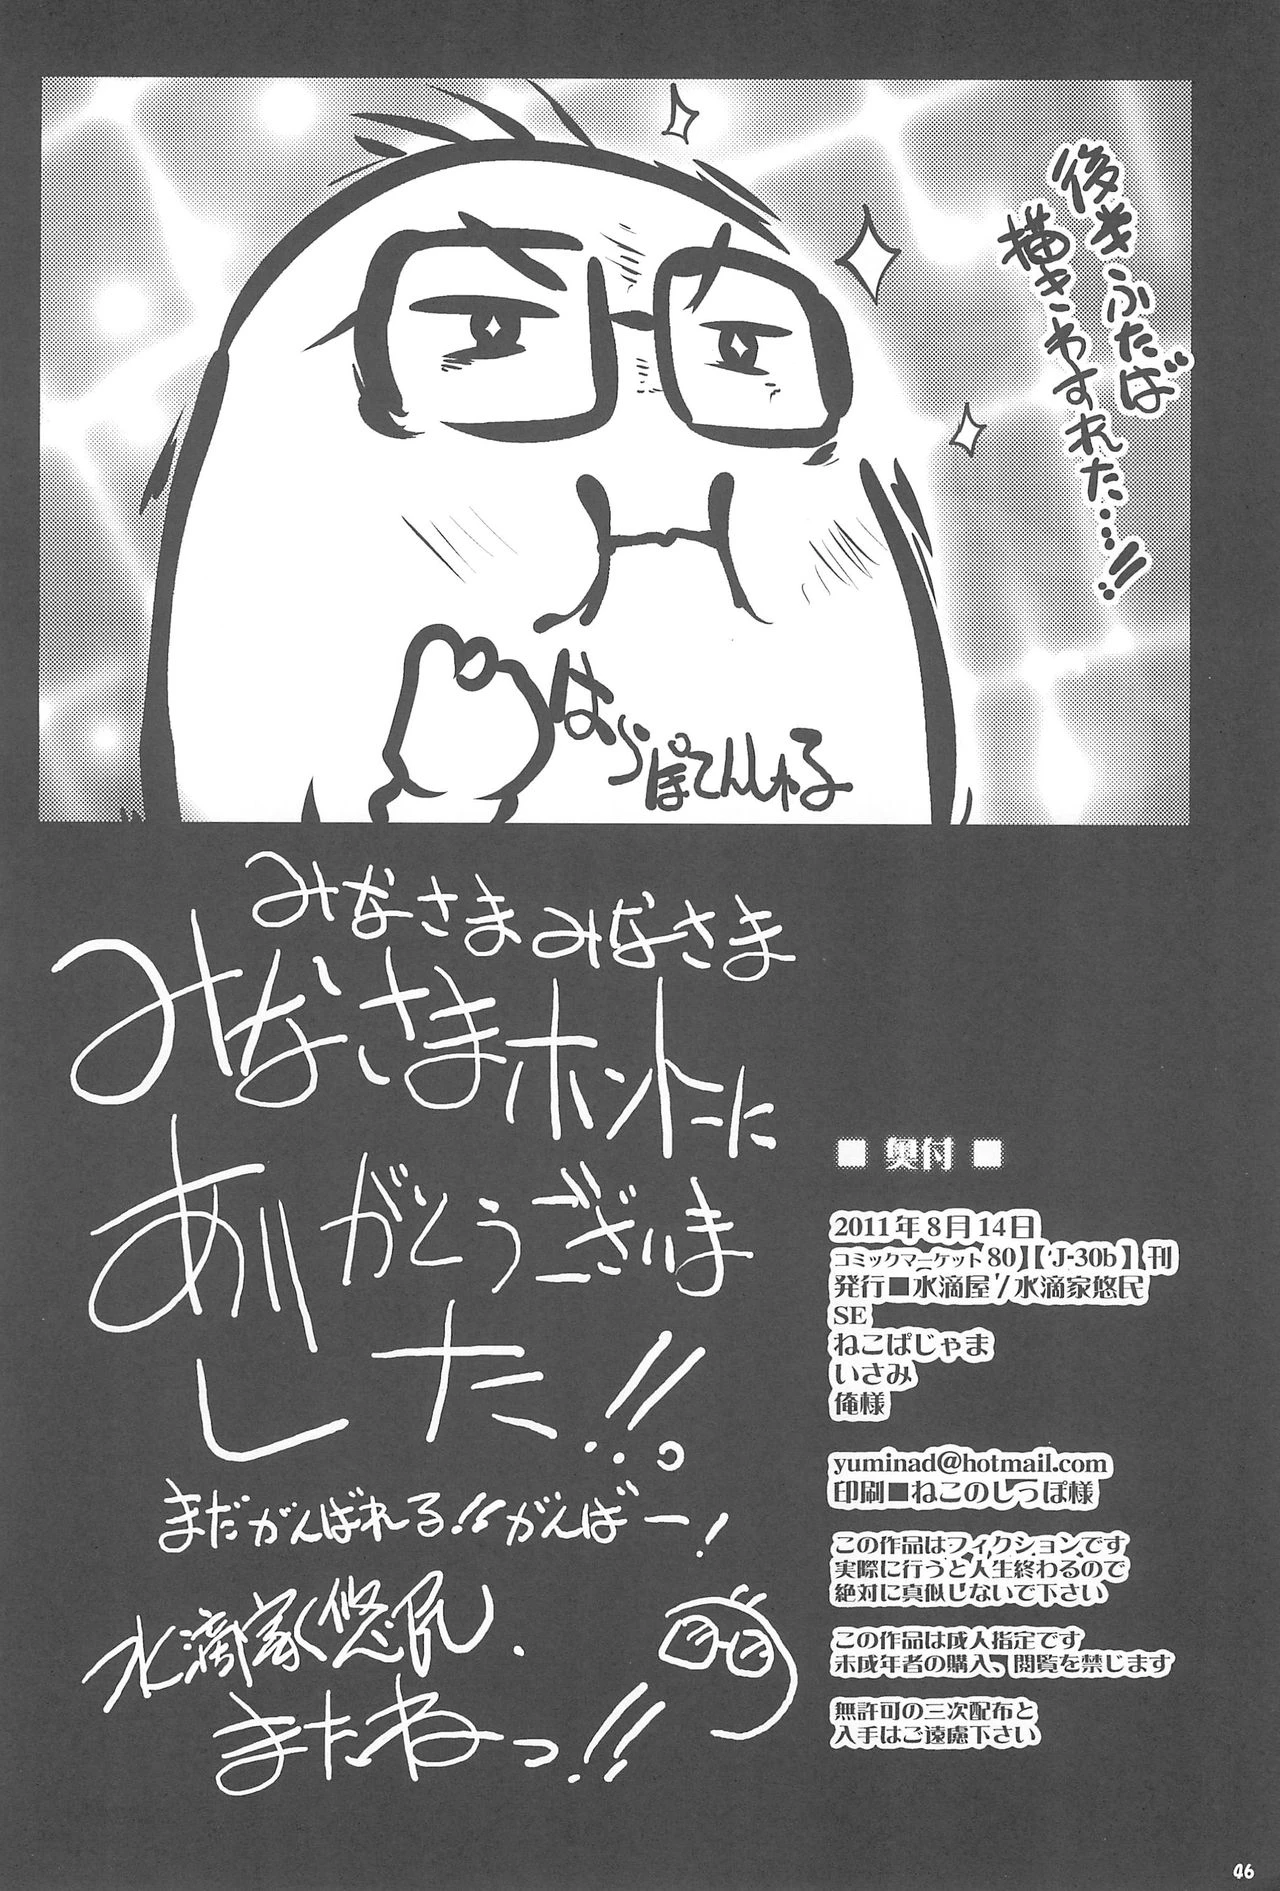 後ろふたば
描きわすれた…!!
はらぽてんしゃる
みなさまみなさま
みなさまホントーに
ありがとうございま
した!!。
まだがんばれる!!がんばー!
水滴家悠民.
またねっ!!
■ 奥付 ■
2011年8月14日
コミックマーケット80】【'J-30b】刊
発行■水滴屋'/水滴家悠民
SE
ねこぱじゃま
いさみ
俺様
yuminad@hotmail.com
印刷■ねこのしっぽ様
この作品はフィクションです
実際に行うと人生終わるので
絶対に真似しないで下さい
この作品は成人指定です
未成年者の購入、閲覧を禁じます
無許可の三次配布と
入手はご遠慮下さい
46